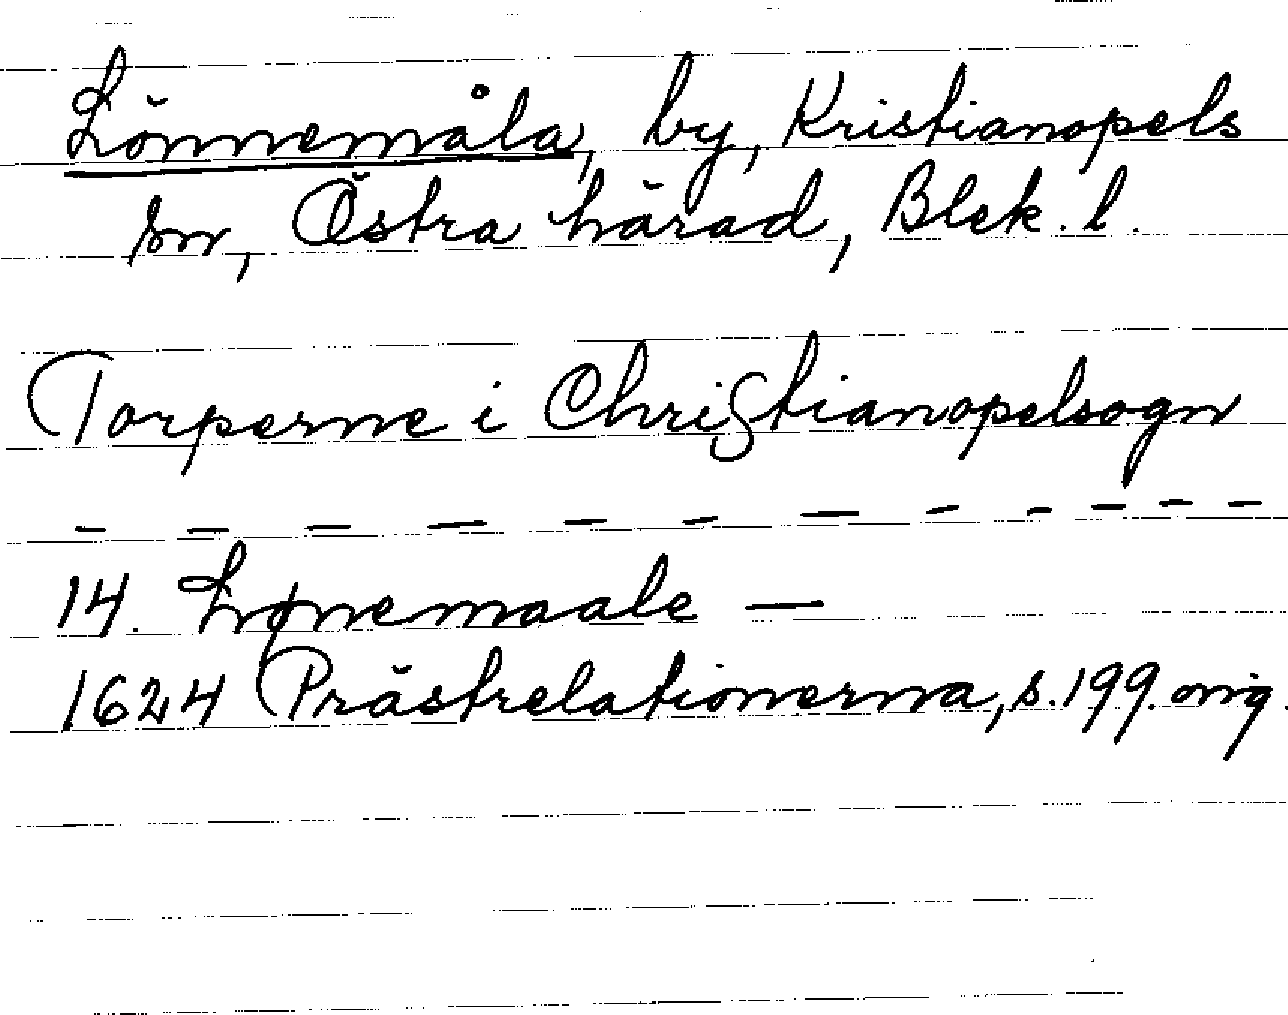 Lönnemåla, by, Kristianopels
sn, Östra härad, Blek. l.
Torperne i Christianopelsogn
- - - - - - - - - - - -
14. Lønemaale —
1624 Prästrelationerna, s. 199. orig.